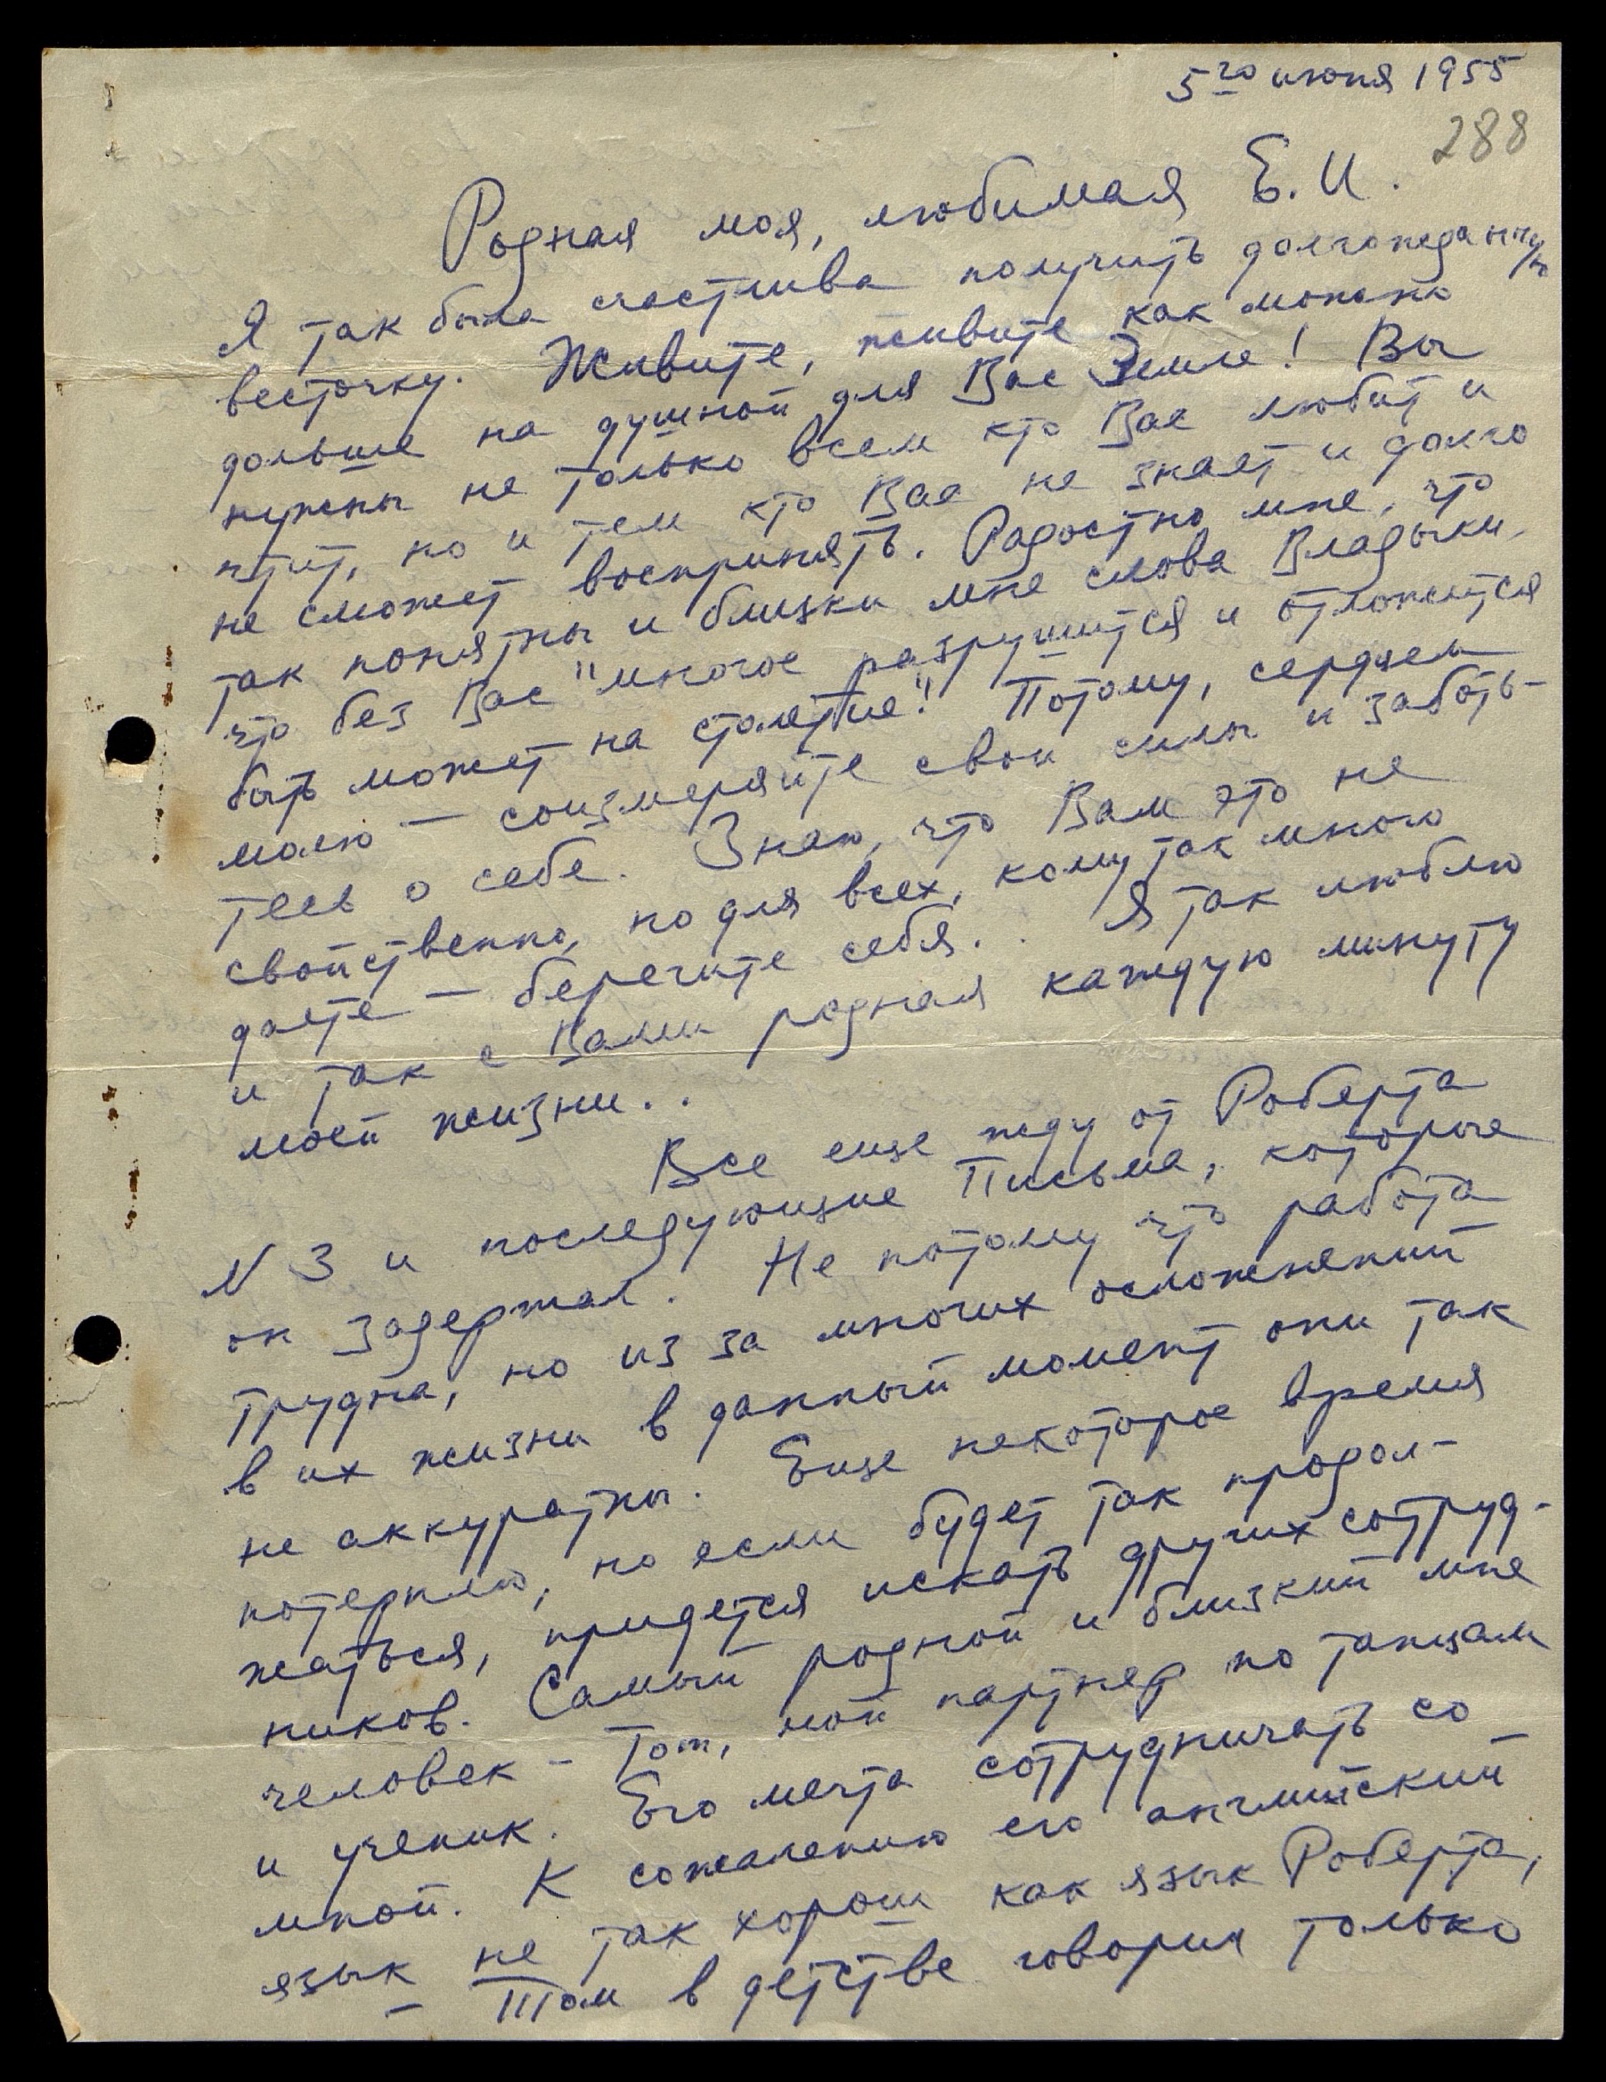 5го июня 1955
288
Родная моя, любимая Е.И.
Я так была счастлива получить долгожданную
весточку. Живите, живите как можно
дольше на душной для Вас Земле! Вы
нужны не только всем кто Вас любит и
чтит, но и тем кто Вас не знает и долго
не сможет воспринять. Радостно мне, что
так понятны и близки мне слова Владыки,
что без Вас "многое разрушится и отложится
быть может на столетие". Потому, сердцем
молю — соизмеряйте свои силы и заботь-
тесь о себе. Знаю, что Вам это не
свойственно, но для всех, кому так много
даете — берегите себя.. Я так люблю
и так с Вами родная каждую минуту
моей жизни..
Все еще жду от Роберта
N 3 и последующие Письма, которые
он задержал. Не потому что работа
трудна, но из за многих осложнений
в их жизни в данный момент они так
не аккуратны. Еще некоторое время
потерплю, но если будет так продол-
жаться, придется искать других сотруд-
ников. Самый родной и близкий мне
человек - Том, мой партнер по танцам
и ученик. Его мечта сотрудничать со
мной. К сожалению его английский
язык не так хорош как язык Роберта,
— Том в детстве говорил только